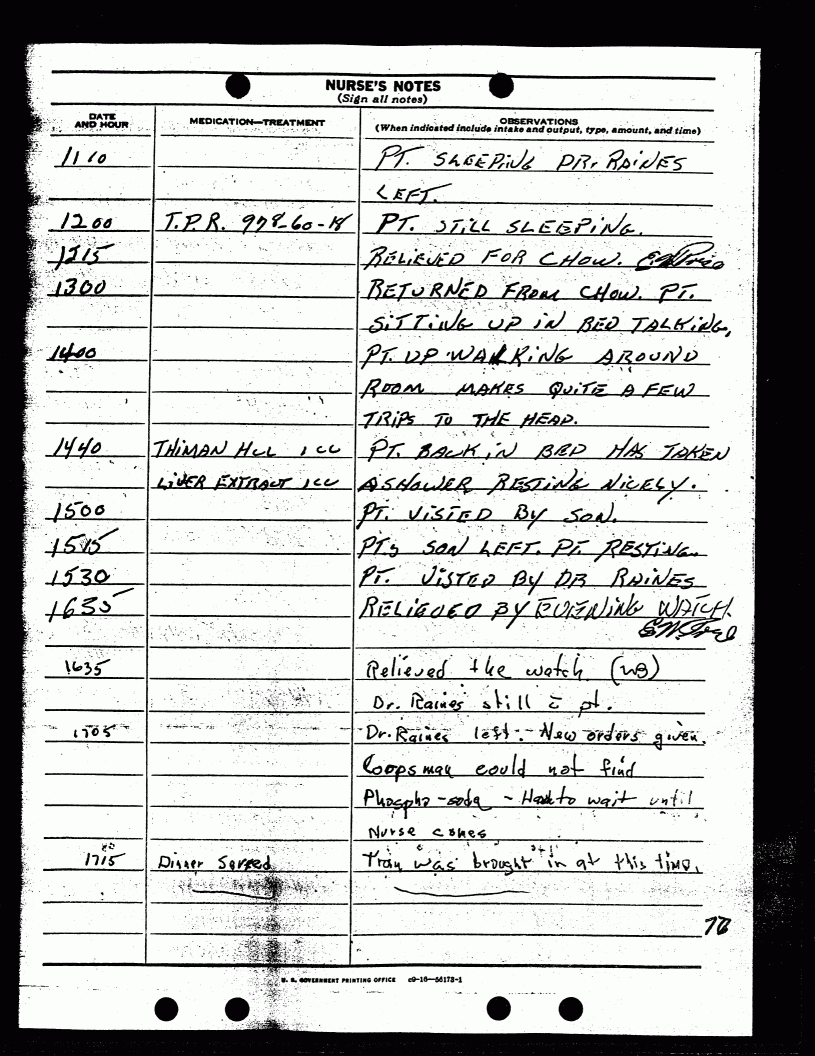 NURSE'S NOTES
(Sign all notes)
DATE AND HOUR MEDICATION—TREATMENT OBSERVATIONS
(When indicated include intake and output, type, amount, and time)
1110 PT. SLEEPING DR. RAINES
LEFT.
1200 T.P.R. 978-60-18 PT. STILL SLEEPING.
1215 RELIEVED FOR CHOW.
1300 RETURNED FROM CHOW. PT.
SITTING UP IN BED TALKING,
1400 PT. UP WALKING AROUND
ROOM MAKES QUITE A FEW
TRIPS TO THE HEAD.
1440 THIMAN HCL 1 CC PT. BACK IN BED HAS TAKEN
LIVER EXTRACT 1 CC A SHOWER RESTING NICELY.
1500 PT. VISTED BY SON.
1515 PTS SON LEFT. PT. RESTING.
1530 PT. VISTED BY DR RAINES
1635 RELIEVED BY EVENING WATCH.
1635 Relieved the watch (WB)
Dr. Raines still c̄ pt.
1705 Dr. Raines left. New orders given.
Coopsman could not find
Phospho-soda - Had to wait until
Nurse comes
1715 Dinner Served Tray was brought in at this time.
U. S. GOVERNMENT PRINTING OFFICE c9-16—56173-1